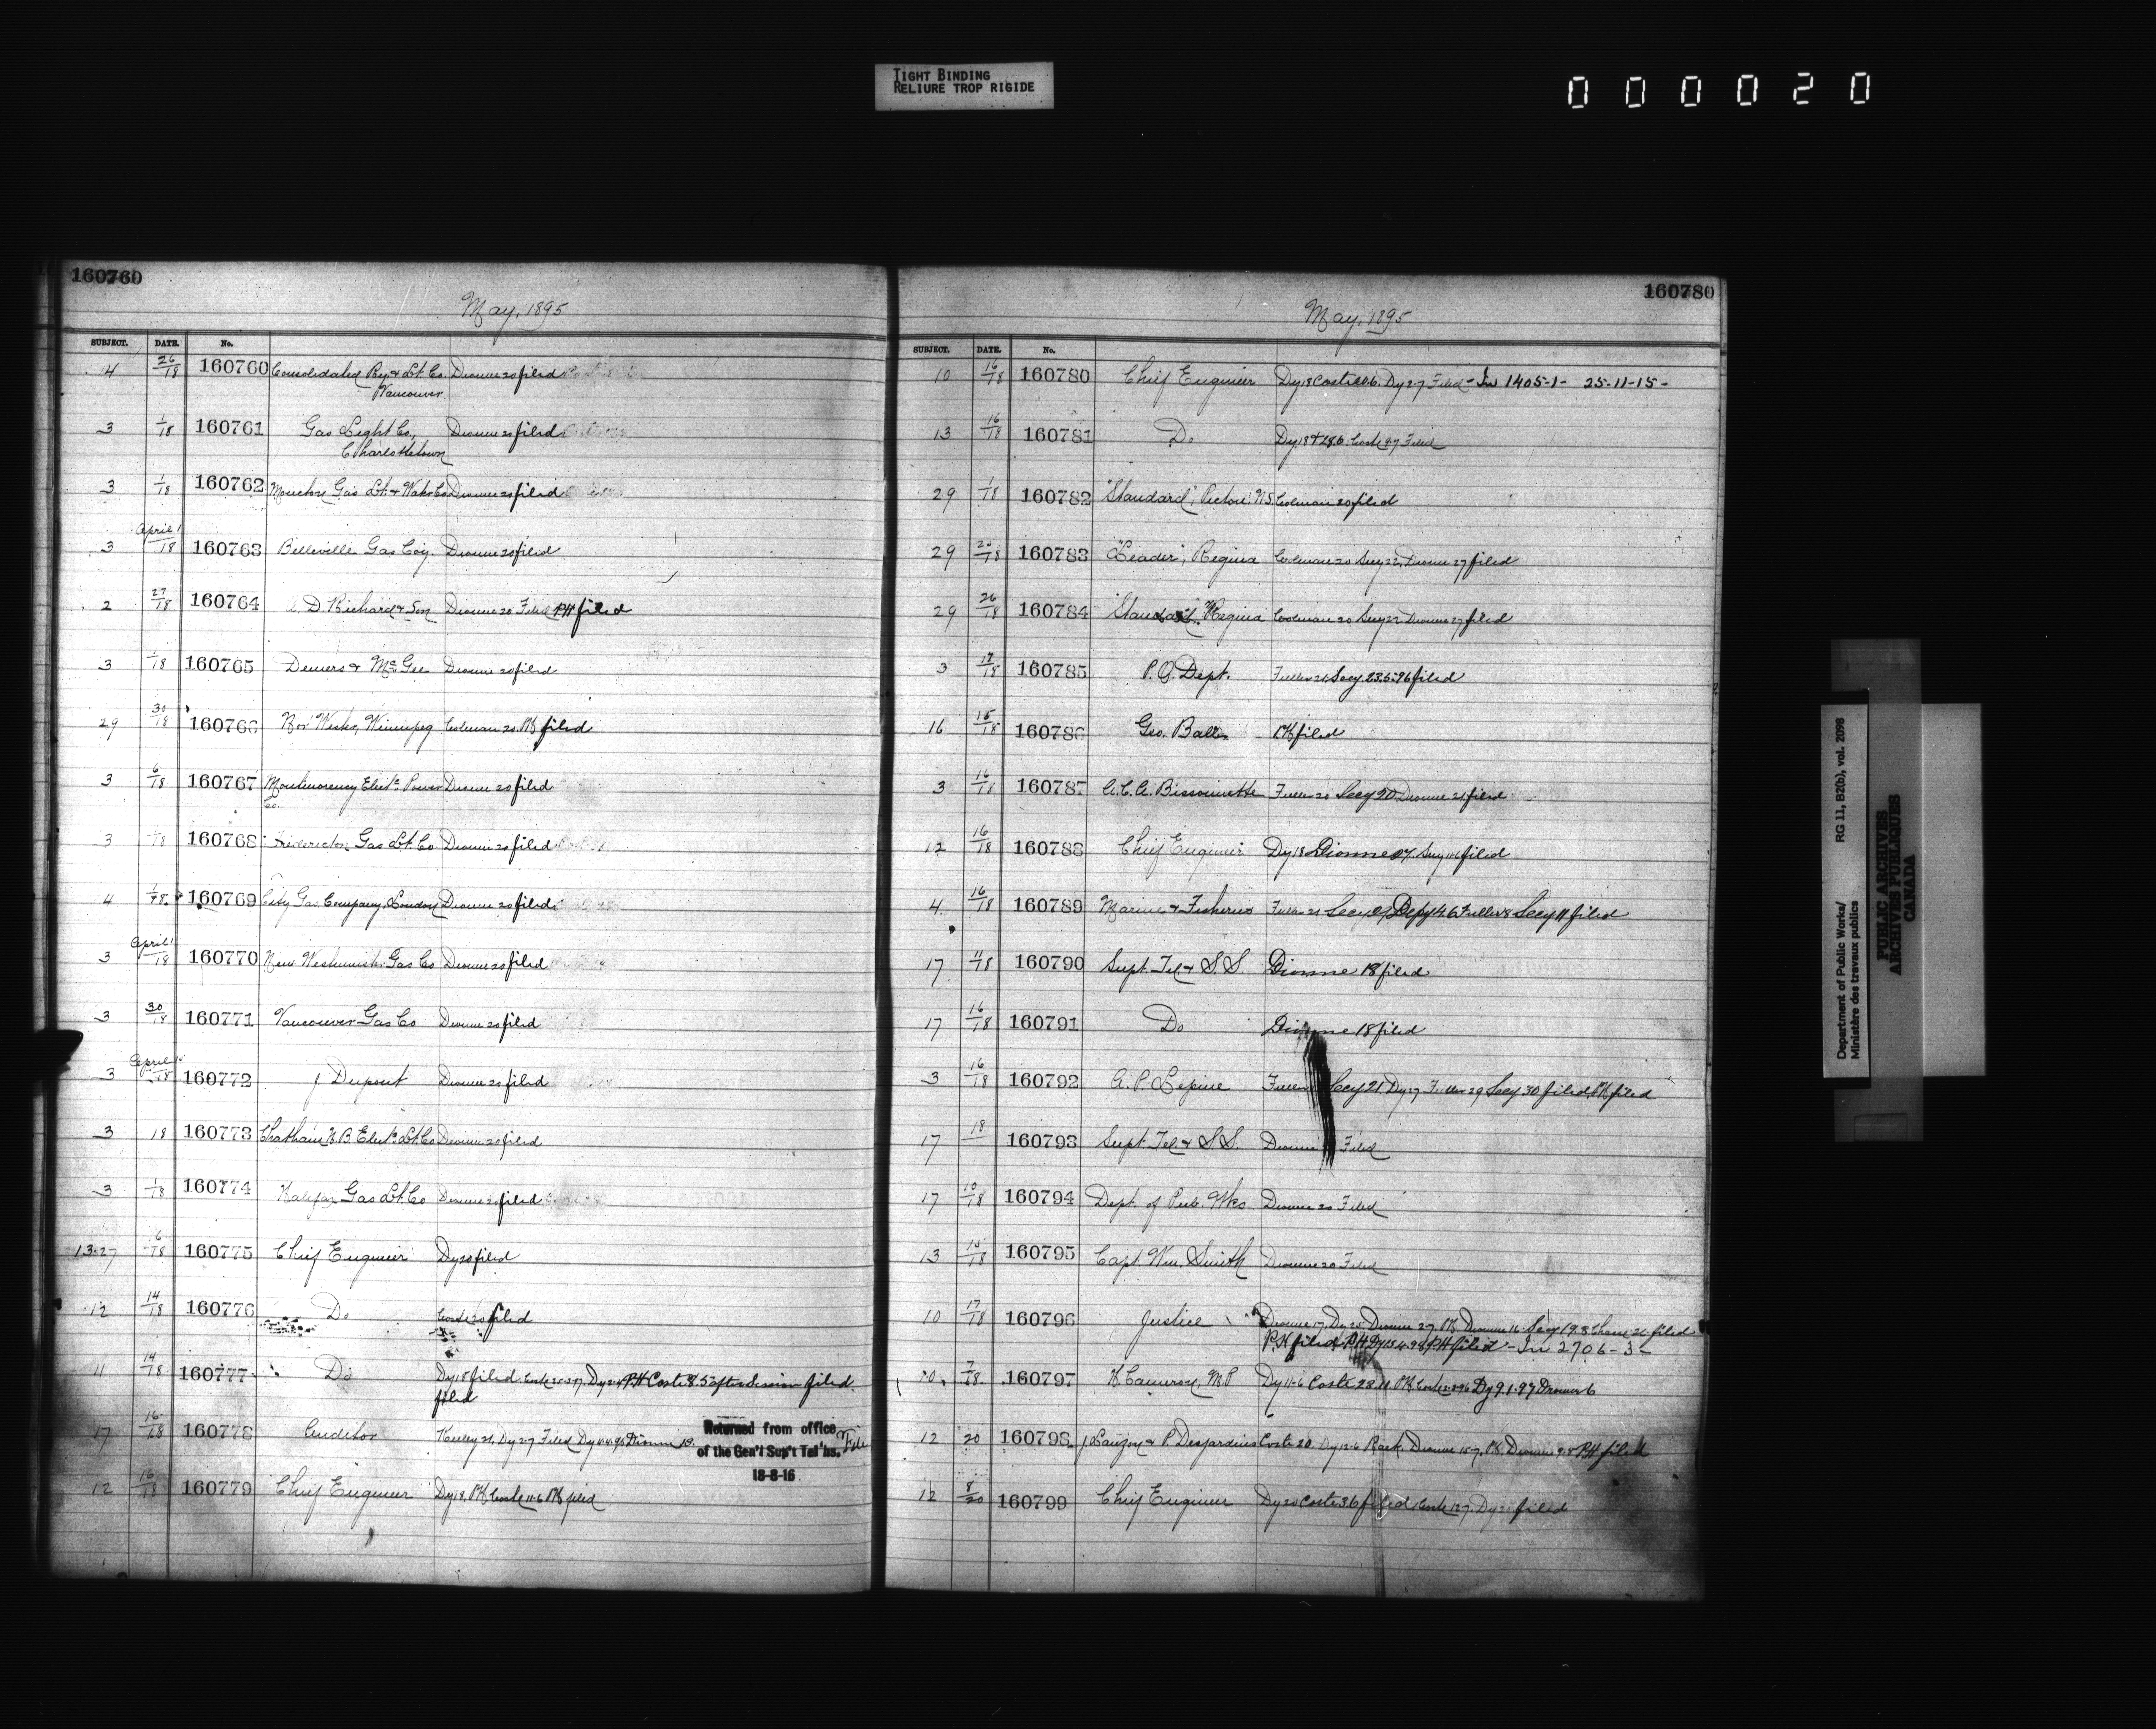 TIGHT BINDING
RELIURE TROP RIGIDE
000020
160760
May, 1895
SUBJECT. DATE. No.
14 26/18 160760 Consolidated Ry & Lt. Co. Dionne 20 filed
Vancouver
3 1/18 160761 Gas Light Co., Dionne 20 filed
Charlottetown
3 1/18 160762 Moncton Gas Lt. & Water Co Dionne 20 filed
April 1
3 18 160763 Belleville Gas Coy. Dionne 20 filed
2 27/18 160764 D. Richard & Son Dionne 20 Filed PH filed
3 1/18 160765 Demers & McGee Dionne 20 filed
29 30/18 160766 Nor' Wester, Winnipeg Colman 20 PH filed
3 6/18 160767 Montmorency Elect. Power Dionne 20 filed
Co.
3 18 160768 Fredericton Gas Lt. Co Dionne 20 filed
4 1/18 160769 City Gas Company, London Dionne 20 filed
April 1
3 18 160770 New Westminster Gas Co Dionne 20 filed
3 30/18 160771 Vancouver Gas Co Dionne 20 filed
April
3 18 160772 J Dupont Dionne 20 filed
3 18 160773 Chatham N.B Elect. Lt. Co Dionne 20 filed
3 1/18 160774 Halifax Gas Lt. Co Dionne 20 filed
13.27 6/18 160775 Chief Engineer Dy 20 filed
12 14/18 160776 Do Coste 20 filed
11 14/18 160777 Do Dy 18 filed Coste PH Coste 8.5 after Session filed
filed
17 16/18 160778 Auditor Dy 27 Filed Dionne File
Returned from office
of the Gen'l Sup't Tel'hs.
18-8-16
12 16/18 160779 Chief Engineer Dy 18, PH Coste 11-6 PH filed
160780
May, 1895
SUBJECT. DATE. No.
10 16/18 160780 Chief Engineer Dy 18 Coste Dy 27 Filed - In 1405-1- 25-11-15-
13 16/18 160781 Do Dy 18 Coste Filed
29 1/18 160782 "Standard", Pictou. N.S. Colman 20 filed
29 18 160783 "Leader", Regina Colman 20 Secy 22, Dionne 27 filed
29 26/18 160784 "Standard", Regina Colman 20 Secy 22 Dionne 27 filed
3 17/18 160785 P.O. Dept. Fuller 21 Secy 23.5.96 filed
16 15/18 160786 Geo. Ball PH filed
3 16/18 160787 A.C.A. Bissonnette Fuller 20 Secy 20 Dionne 21 filed
12 16/18 160788 Chief Engineer Dy 18 Dionne filed
4 16/18 160789 Marine & Fisheries Fuller 21 Secy Depy 14.6 Fuller 8 Secy 11 filed
17 11/18 160790 Supt. Tel & S S Dionne 18 filed
17 16/18 160791 Do Dionne 18 filed
3 16/18 160792 A. P. Lepine Fuller Secy 21, Dy 27 Fuller 29 Secy 30 filed, PH filed
17 18 160793 Supt. Tel. & S S. Dionne Filed
17 10/18 160794 Dept. of Pub. Wks Dionne 20 Filed
13 15/18 160795 Capt. Wm. Smith Dionne 20 Filed
10 17/18 160796 Justice Dionne 17, Dy 25 Dionne 27 PH Dionne 16 Secy 19.8 filed
P.H filed PH Dy PH filed - In 2706-3-
10 7/18 160797 H Cameron, M.P Dy 11-6 Coste 28.11 PH Coste Dy 9.1.97 Dionne 6
12 20 160798 J Lauzon & P Desjardins Coste 20 Dy 12-6 Dionne 15-7 PH Dionne 9-8 PH filed
12 8/20 160799 Chief Engineer Dy 20 Coste 3.6 filed Coste 12-7 Dy filed
Department of Public Works/
Ministère des travaux publics
RG 11, B2(b), vol. 2098
PUBLIC ARCHIVES
ARCHIVES PUBLIQUES
CANADA